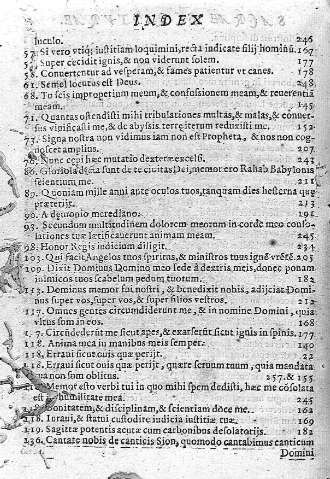 INDEX
luculo. 246
57. Si vero vtiq; iustitiam loquimini, recta iudicate filij hominũ. 167
57. Super cecidit ignis, & non viderunt solem. 177
58. Conuertentur ad vesperam, & fames patientur vt canes. 178
61. Semel locutus est Deus. 248
68. Tu scis improperium meum, & confusionem meam, & reuerentiã
meam. 145
71. Quantas ostendisti mihi tribulationes multas, & malas, & conuer-
sus viuificasti me, & de abyssis terre iterum reduxisti me. 152
73. Signa nostra non vidimus iam non est Propheta, & nos non co-
gnoscet amplius. 207
Nunc cepi hæc mutatio dexteræ excelsi. 242
86. Gloriosa dicta sunt de te ciuitas Dei, memor ero Rahab Babylonis
scientium me. 211
89. Quoniam mille anni ante oculos tuos, tanquam dies hesterna quæ
præterijt. 213
90. A demonio merediano. 192
93. Secundum multitudinem dolorum meorum in corde meo conso-
lationes tuæ lætificauerunt animam meam. 245
98. Honor Regis iudicium diligit. 234
103. Qui facit Angelos tuos spiritus, & ministros tuos igné vrété. 203
109. Dixit Dominus Domino meo sede à dextris meis, donec ponam
inimicos tuos scabelum pedum tuorum. 182
113. Dominus memor fui nostri, & benedixit nobis, adijciat Domi-
nus super vos, super vos, & super filios vestros. 212
117. Omnes gentes circumdiderunt me, & in nomine Domini, quia
vltus som in eos. 168
117. Circundederunt me sicut apes, & exarserũt sicut ignis in spinis. 177
118. Anima mea in manibus meis semper. 140
118. Erraui sicut ouis quæ perijt. 22
118. Erraui sicut ouis quæ perijt, quære seruum tuum, quia mandata
tua non sum oblitus. 257. & 155
Memor esto verbi tui in quo mihi spem dedisti, hæc me cõsolata
est in humilitate mea. 245
Bonitatem, & disciplinam, & scientiam doce me. 162
118. Iuraui, & statui custodire iudicia iustitiæ tuæ. 169
119. Sagittæ potentis acutæ cum carbonibus desolatorijs. 182
136. Cantate nobis de canticis Sion, quomodo cantabimus canticum
Domini